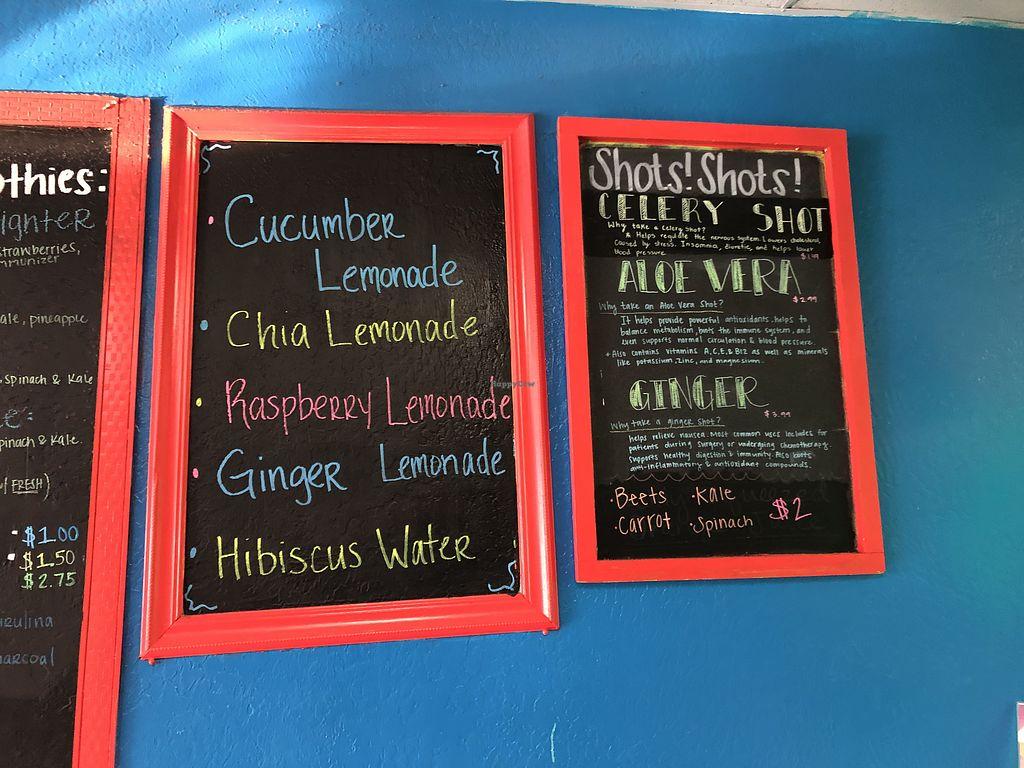 othies:
ighter
strawberries,
mmunizer
ale, pineapple
, spinach & Kale
e:
pinach & Kale.
w/ FRESH)
$1.00
$1.50
$2.75
irulina
harcoal
Cucumber
Lemonade
Chia Lemonade
Raspberry Lemonade
Ginger Lemonade
Hibiscus Water
HappyCow
Shots! Shots!
CELERY SHOT
Why take a Celery shot?
& Helps regulate the nervous system. Lowers cholesterol,
caused by stress. Insomnia, diuretic, and helps lower
blood pressure. $1.99
ALOE VERA
$2.99
Why take an Aloe Vera Shot?
It helps provide powerful antioxidants, helps to
balance metabolism, boosts the immune system, and
even supports normal circulation & blood pressure.
+ Also contains vitamins A,C,E,& B12 as well as minerals
like potassium, zinc, and magnesium.
GINGER
$3.99
Why take a ginger shot?
helps relieve nausea. Most common uses includes for
patients during surgery or undergoing chemotherapy.
supports healthy digestion & immunity. Also boosts
anti-inflammatory & antioxidant compounds.
·Beets ·Kale
·Carrot ·Spinach $2